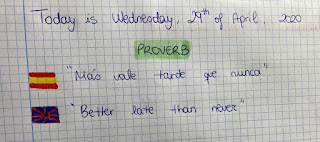 Today is Wednesday, 29th of April, 2020
PROVERB
"Más vale tarde que nunca"
"Better late than never"